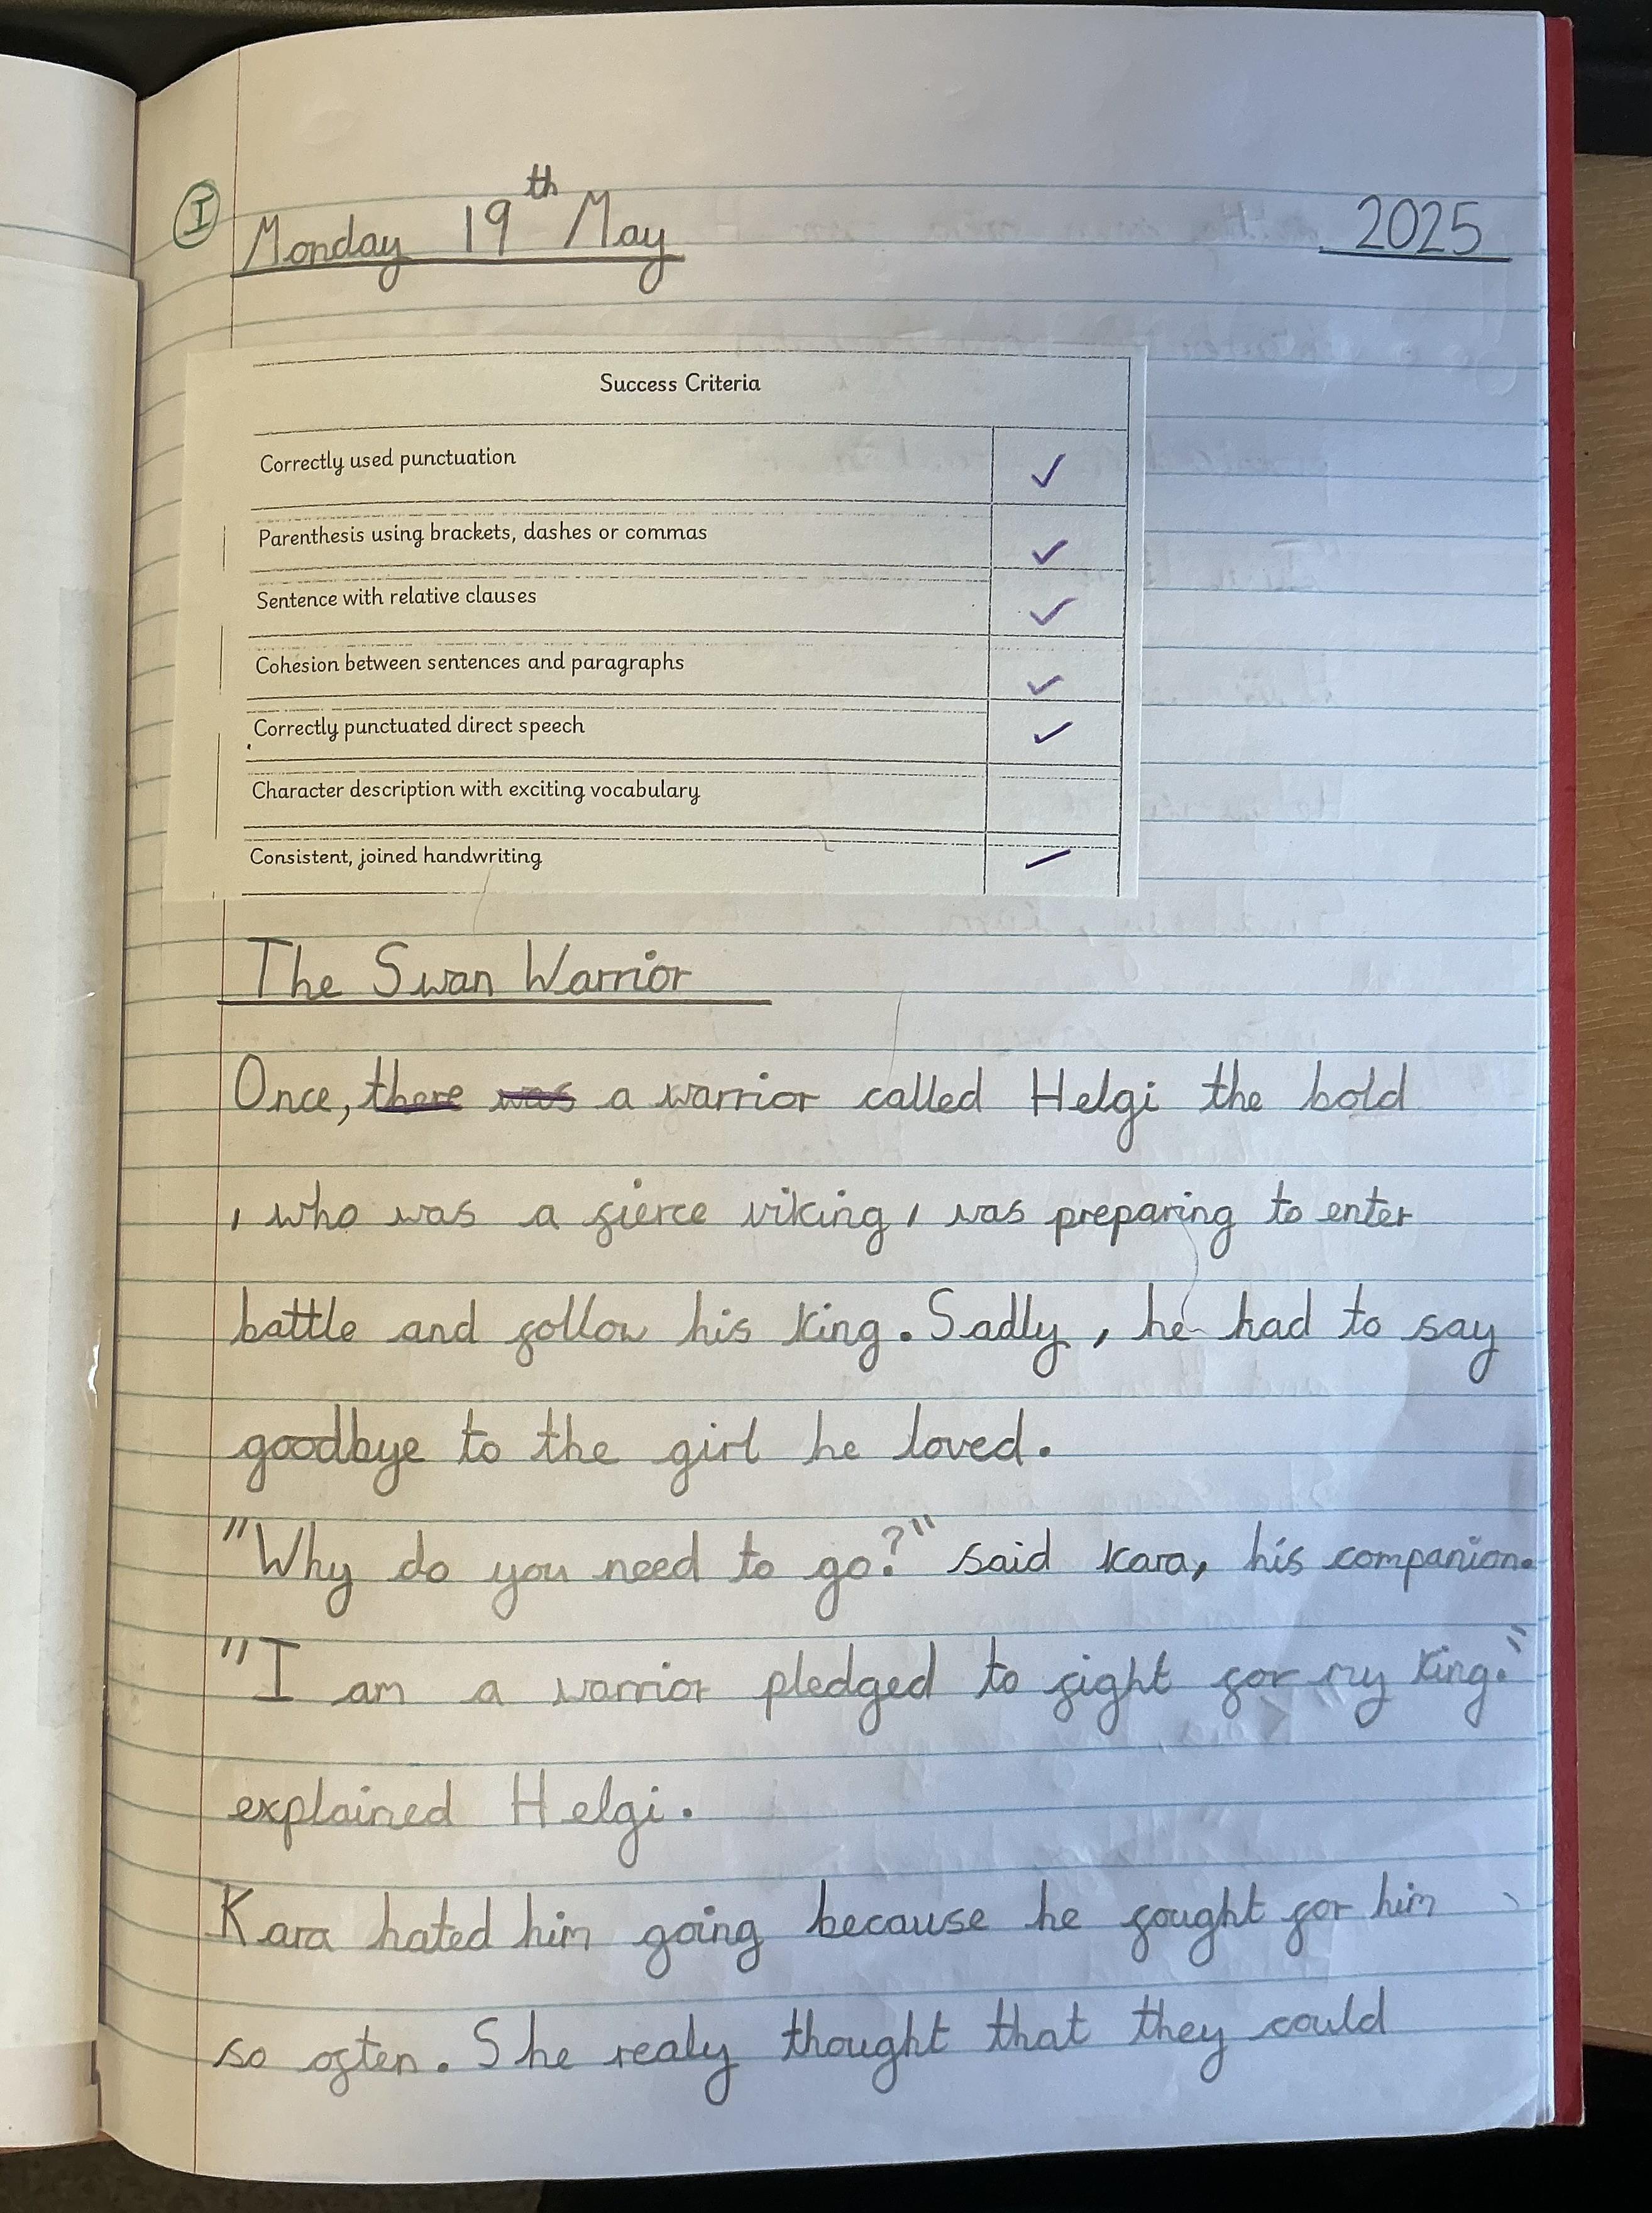 I
Monday 19th May 2025
Success Criteria
Correctly used punctuation ✓
Parenthesis using brackets, dashes or commas ✓
Sentence with relative clauses ✓
Cohesion between sentences and paragraphs ✓
Correctly punctuated direct speech ✓
Character description with exciting vocabulary
Consistent, joined handwriting
The Swan Warrior
Once, there was a warrior called Helgi the bold
, who was a fierce viking, was preparing to enter
battle and follow his king. Sadly, he had to say
goodbye to the girl he loved.
"Why do you need to go?" said Kara, his companion.
"I am a warrior pledged to fight for my king."
explained Helgi.
Kara hated him going because he fought for him
so often. She realy thought that they could